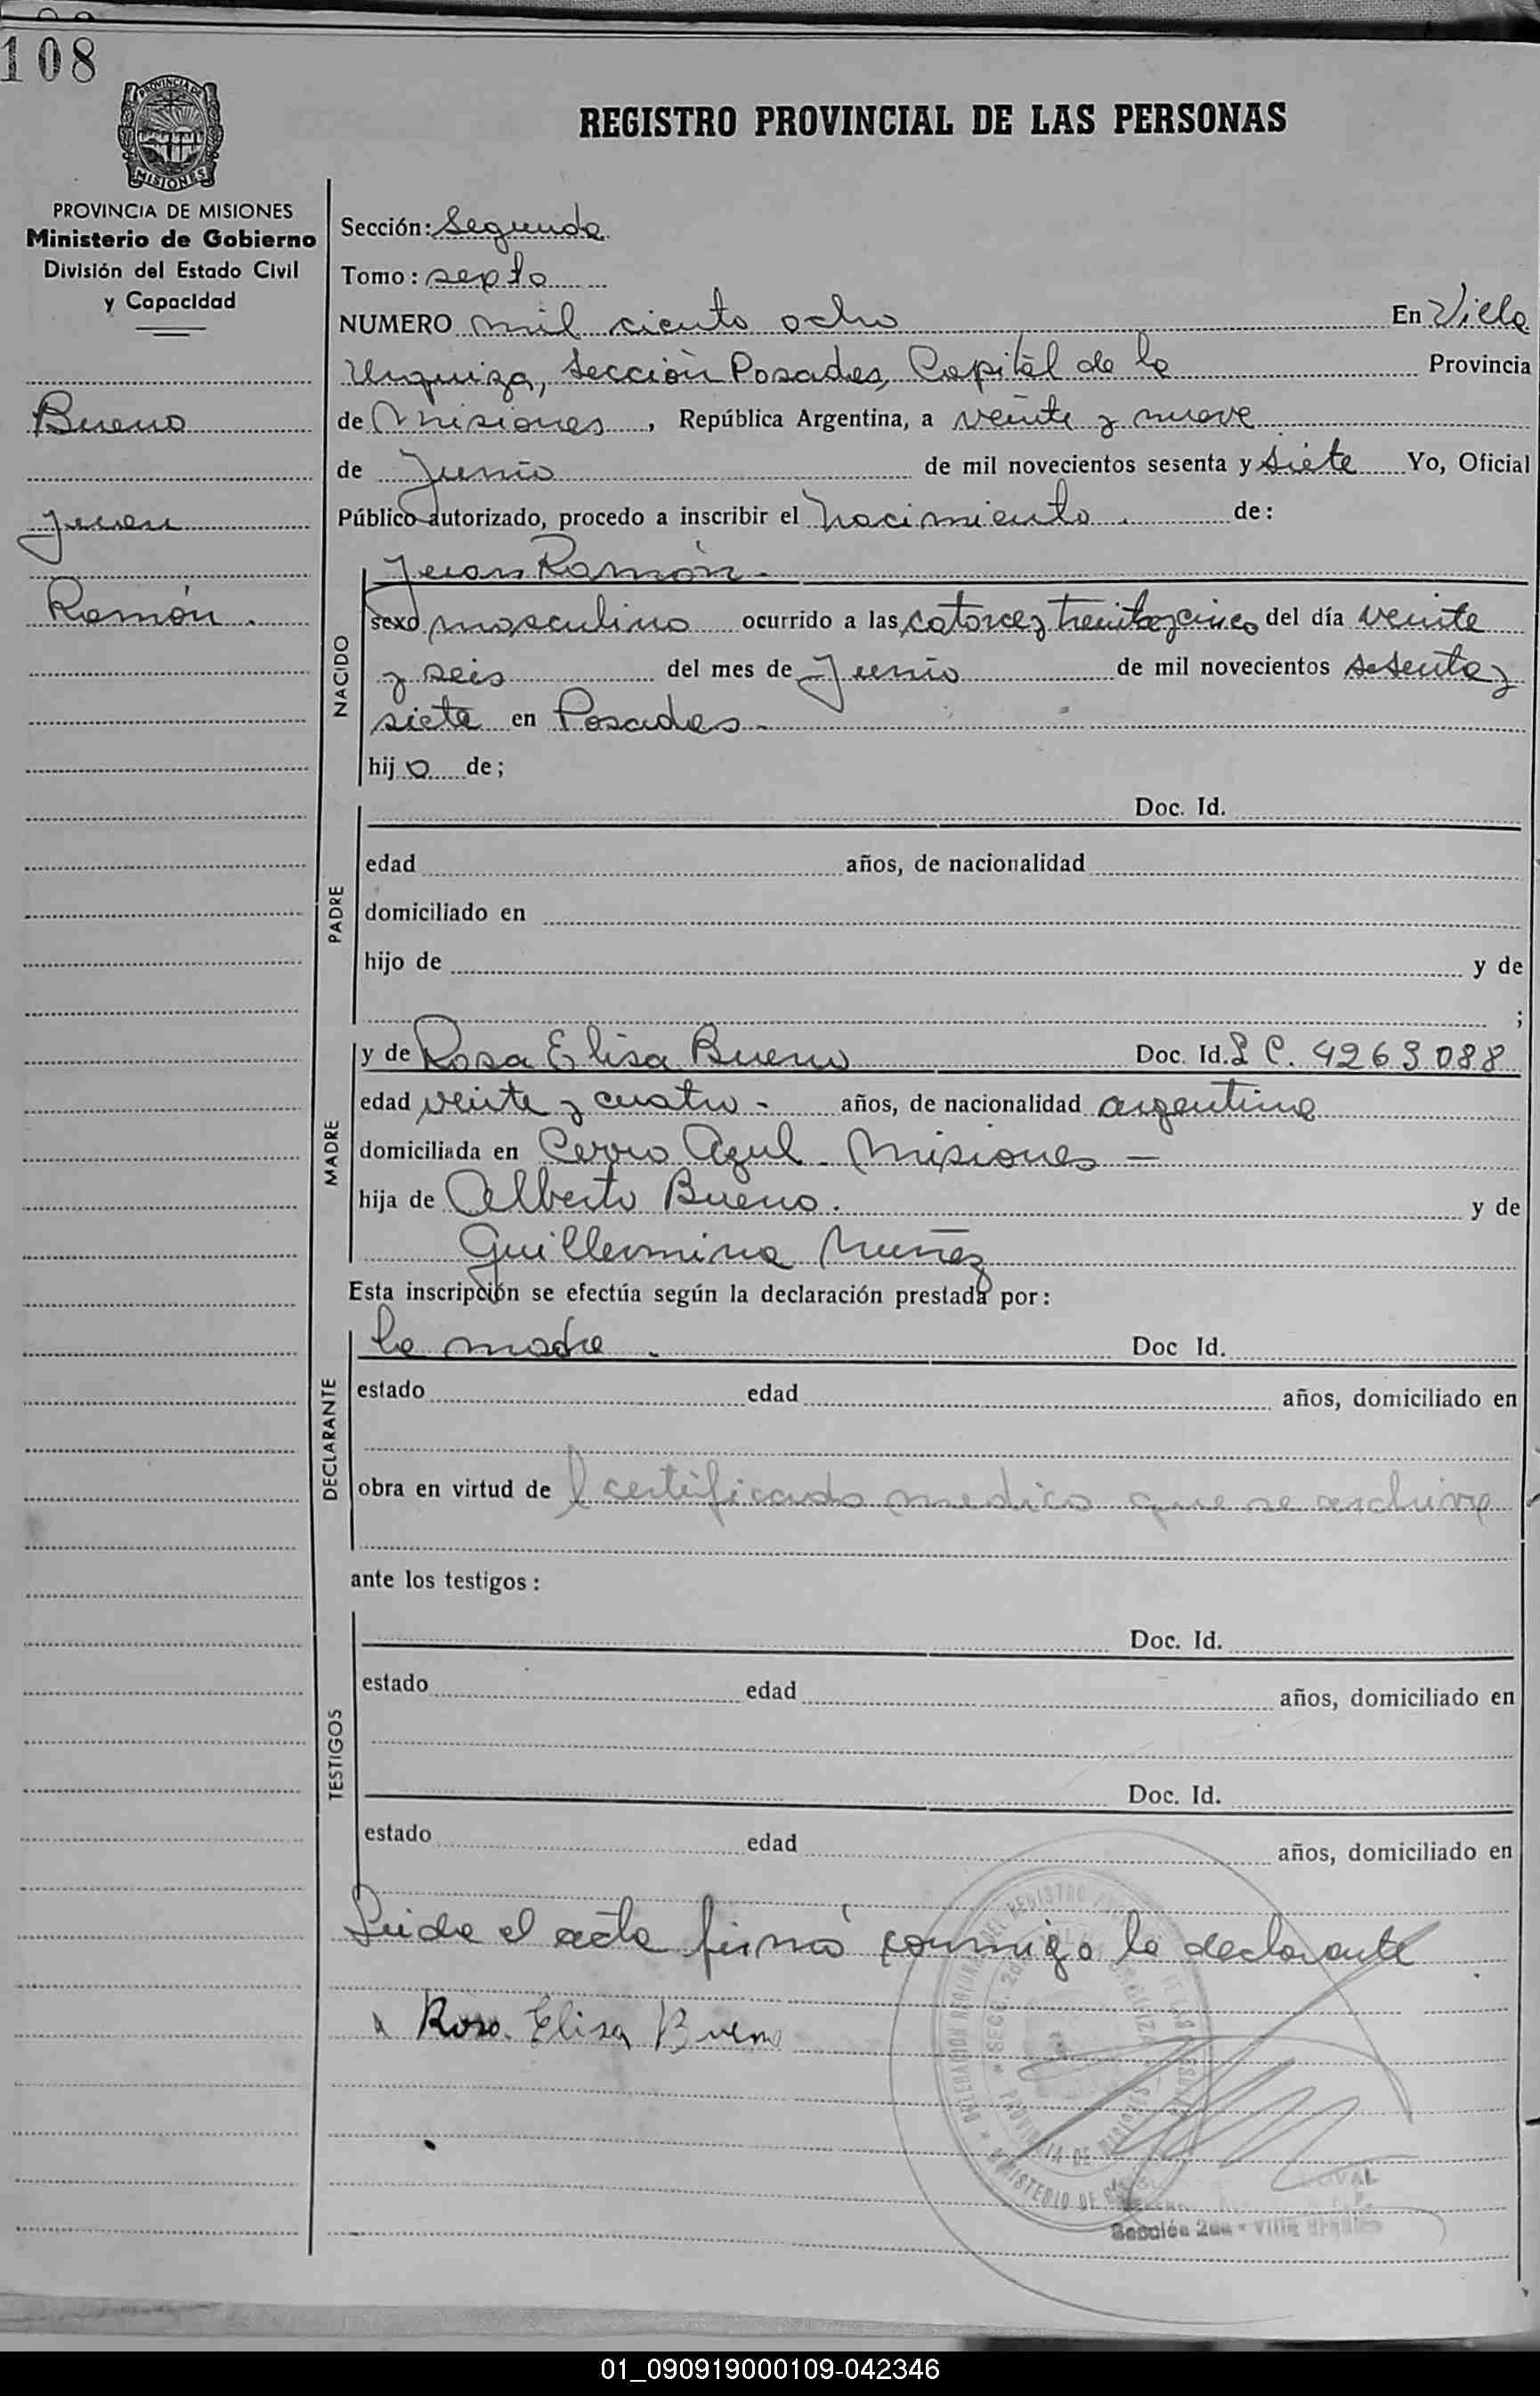 108
PROVINCIA DE
MISIONES
REGISTRO PROVINCIAL DE LAS PERSONAS
PROVINCIA DE MISIONES
Ministerio de Gobierno
División del Estado Civil
y Capacidad
Bueno
Juan
Ramón.
Sección: Segunda
Tomo: septo
NUMERO mil ciento ocho En Villa
Urquiza, Sección Posadas, Capital de la Provincia
de Misiones, República Argentina, a veinte y nueve
de Junio de mil novecientos sesenta y siete Yo, Oficial
Público autorizado, procedo a inscribir el nacimiento. de:
NACIDO
Juan Ramón.-
sexo masculino ocurrido a las catorce y treinta y cinco del día veinte
y seis del mes de Junio de mil novecientos sesenta y
siete en Posadas.-
hijo de;
PADRE
Doc. Id.
edad años, de nacionalidad
domiciliado en
hijo de y de
;
MADRE
y de Rosa Elisa Bueno Doc. Id. L C. 4269088
edad veinte y cuatro.- años, de nacionalidad argentina
domiciliada en Cerro Azul - Misiones -
hija de Alberto Bueno. y de
Guillermina Nuñez
Esta inscripción se efectúa según la declaración prestada por:
DECLARANTE
la madre. Doc Id.
estado edad años, domiciliado en
obra en virtud de l certificado medico que se archiva
ante los testigos:
TESTIGOS
Doc. Id.
estado edad años, domiciliado en
Doc. Id.
estado edad años, domiciliado en
Leida el acta firmó conmigo la declarante
Rosa Elisa Bueno
PROVINCIA DE MISIONES
MINISTERIO DE
Sección 2da - Villa Urquiza
01_090919000109-042346